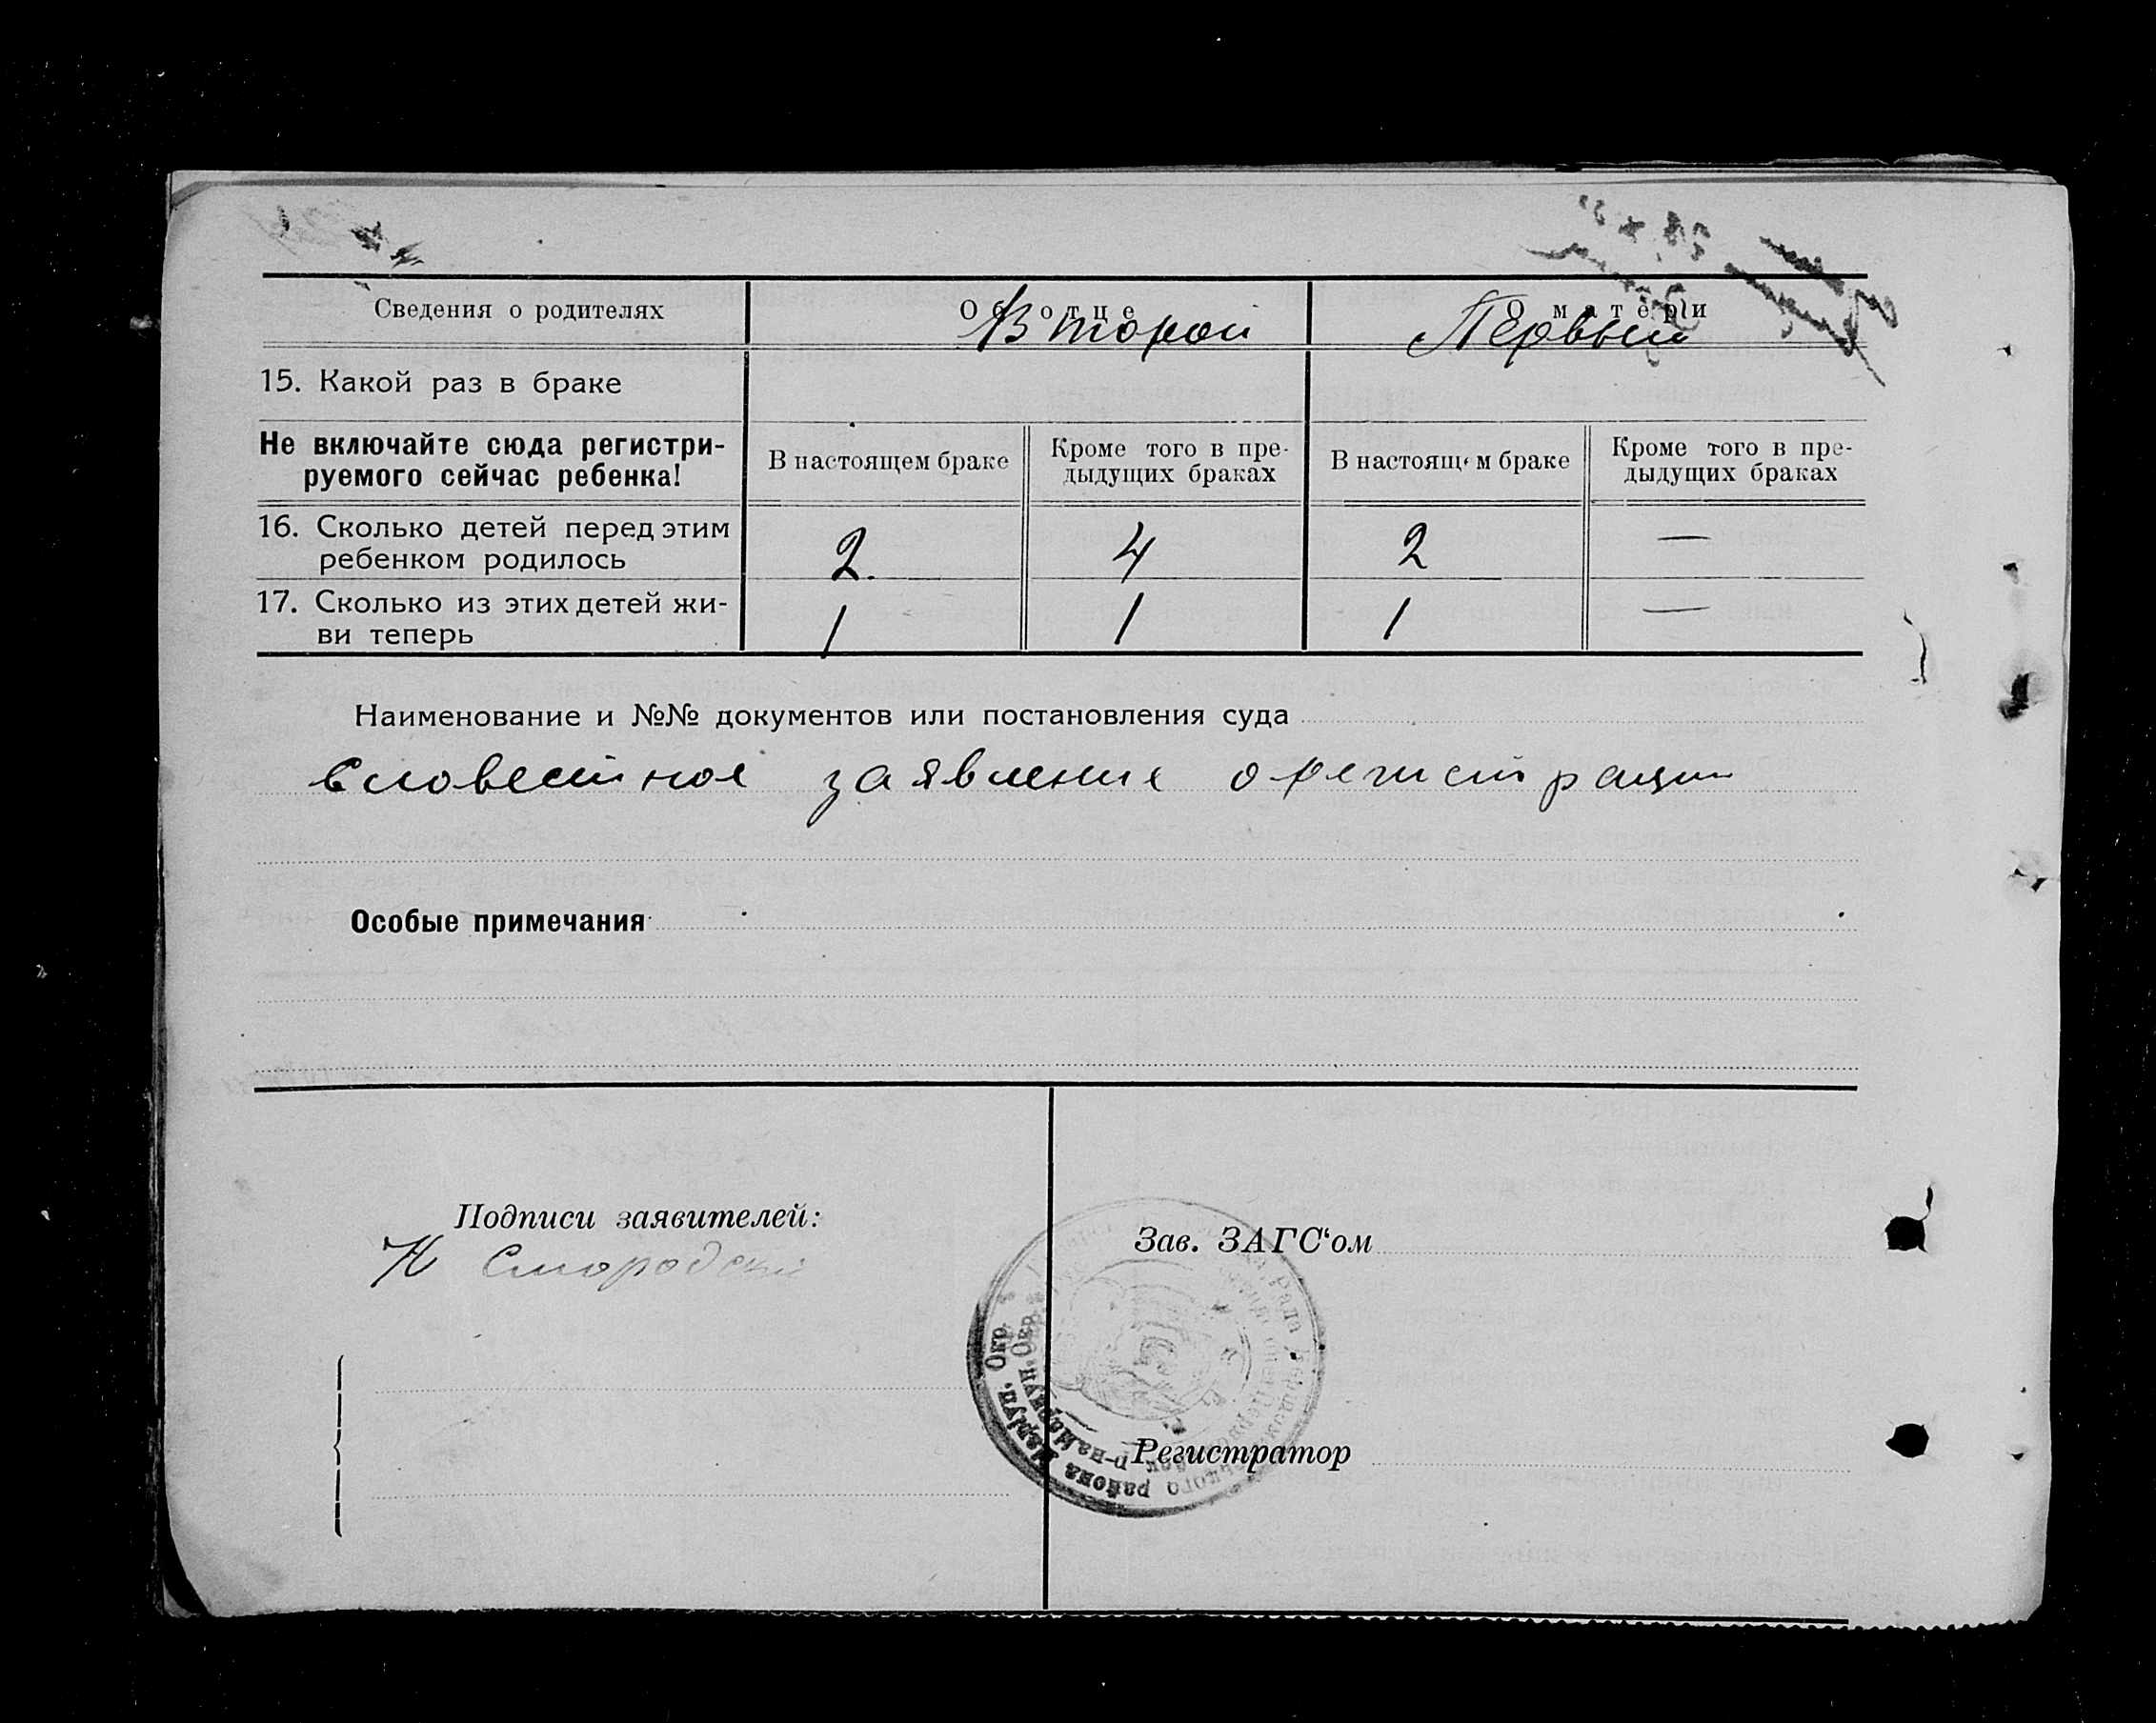 Сведения о родителях
Об отце
О матери
Второй
Первый
15. Какой раз в браке
Не включайте сюда регистри-
руемого сейчас ребенка!
В настоящем браке
Кроме того в пре-
дыдущих браках
В настоящем браке
Кроме того в пре-
дыдущих браках
16. Сколько детей перед этим
ребенком родилось
2
4
2
—
17. Сколько из этих детей жи-
ви теперь
1
1
1
—
Наименование и №№ документов или постановления суда
Словестное заявление о регистрации
Особые примечания
Подписи заявителей:
Зав. ЗАГС‘ом
Регистратор
района Маріуп. Окр.
р-на Маріуп. Окр.